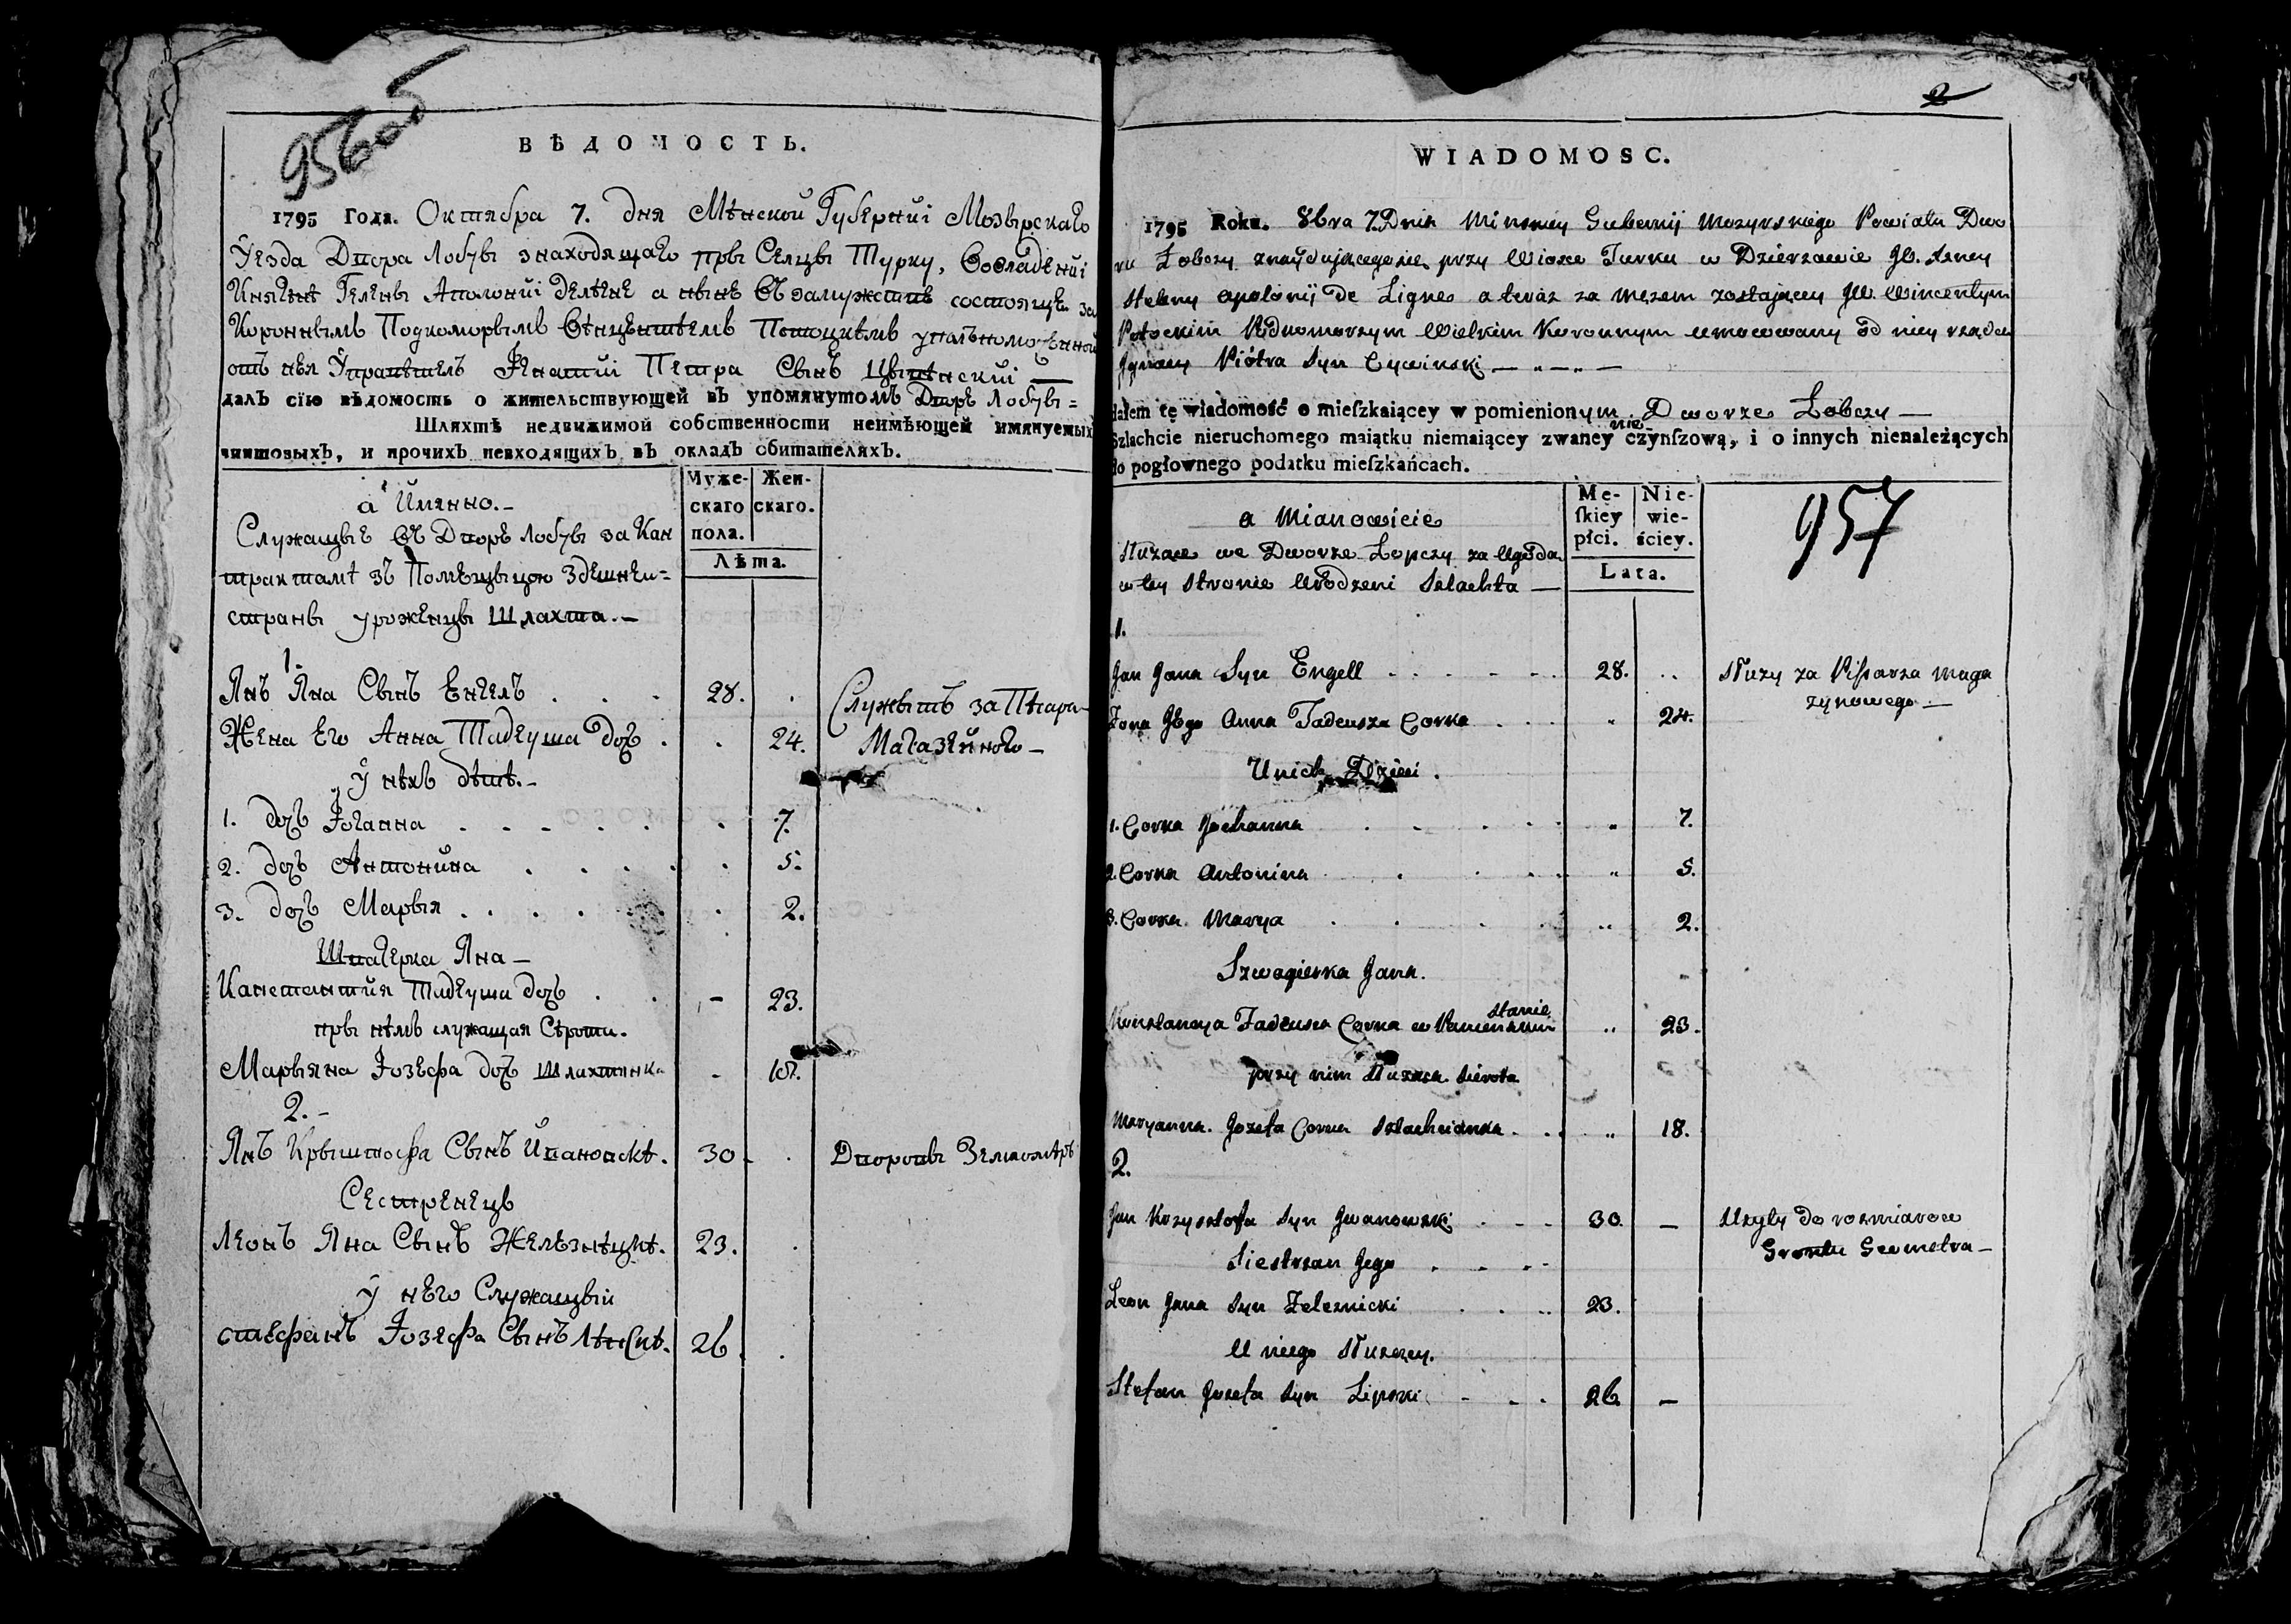 95605
ВѢДОМОСТЬ.
1795 Года. Октября 7. дня Мѣнской Губернii Мозырскаго
Уезда Двора Лобчы знаходящаго пры Селцы Турку, Во владенiй
Княгинѣ Гелены Аполонiй делѣгне а нынѣ въ замужствѣ состоящъ за
Коронвымъ Подкоморымъ Вѣнцентѣмъ Потоцкѣмъ уполъномоченной
отъ нея Управѣтель Игнатiй Петра Сынъ Цывѣнскiй —
далъ сїю вѣдомость о жительствующей въ упомянутомъ Дворѣ Лобчы =
Шляхтѣ недвижимой собственности неимѣющей имянуемых
чиншовыхъ, и прочихъ невходящихъ въ окладъ обитателяхъ.
а Имянно.-
Муже-скаго пола. Жен-скаго.
Лѣта.
Служащые въ Дворѣ Лобчы за Кан
трактамѣ зъ Помещыцою Здешнеи=
страны уроженцы Шляхта.-
1.
Янъ Яна Сынъ Енгелъ . . . 28. .
Служытъ за Пѣсара
Жена Его Анна Тадеуша дочъ . . 24.
Магазейного —
У нѣхъ дѣтѣ.-
1. дочъ Iоганна . . . . . . 7.
2. дочъ Антонина . . . . . 5.
3. дочъ Марыя . . . . . 2.
Швагерка Яна —
Канстантия Тадеуша дочъ . . - 23.
пры нѣмъ служащая Сѣрота.
Марыяна Iозефа дочъ Шляхтянка - 18.
2.-
Янъ Крыштофа Сынъ Ивановскѣ. 30 . Дворовы Землемѣръ
Сестренецъ
Леонъ Яна Сынъ Железнѣцкѣ. 23. .
У него Служащый
стефанъ Iозефа Сынъ Лѣпскѣ. 26. .
2
WIADOMOSC.
1795 Roku. 8bra 7. Dnia Minskiey Gubernij Mozyrskiego Powiatu Dwo
ru Łobczy znayduiącegosie przy Wiosce Turku w Dzierzawie JW. Xzney
Heleny Apolonij De Ligne a teraz za męzem zostaiącey JW. Wincentym
Potockim Podkomorzym Wielkim Koronnym umocowany od niey rządca
Jgnacy Piotra Syn Cywinski — „ — „ —
dałem tę wiadomość o mieſzkaiącey w pomienionym Dworze Łobczy —
Szlachcie nieruchomego maiątku niemaiącey zwaney nie czynſzową, i o innych nienależących
do pogłownego podatku mieſzkańcach.
a Mianowicie
Me-ſkiey płci. Nie-wie-ściey.
Lata.
957
Służące we Dworze Łopczy za Ugodą
w tey stronie Urodzeni Szlachta —
1.
Jan Jana Syn Engell . . . . . 28. ..
Służy za Pisarza maga
zynowego —
Zona Jego Anna Tadeusza Corka . . . „ 24.
Unich Dzieci .
1. Corka Jochanna . . . . „ 7.
2. Corka Antonina . . . . „ 5.
3. Corka Marya . . . . .. 2.
Szwagierka Jana.
Konstancya Tadeusza Corka w Panienskim stanie .. 23.
przy nim służąca sierota
Maryanna Jozefa Corka Szlachcianka . . „ 18.
2.
Jan Krzysztofa Syn Jwanowski . - - 30. —
Użyty do rozmiarow
Gruntu Geometra —
Siestrzan Jego . . . -
Leon Jana Syn Zeleznicki . . .. 23.
U niego Służący.
Stefan Jozefa Syn Lipski - - . 26. —